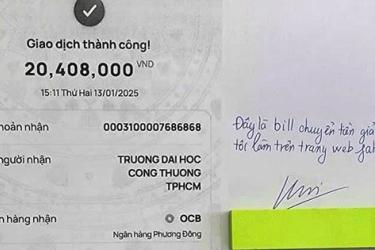 Giao dịch thành công!
20,408,000 VND
15:11 Thứ Hai 13/01/2025
hoản nhận 0003100007686868
gười nhận TRUONG DAI HOC
CONG THUONG
TPHCM
n hàng nhận OCB
Ngân hàng Phương Đông
Đây là bill chuyển tiền giả
tôi làm trên trang web fak